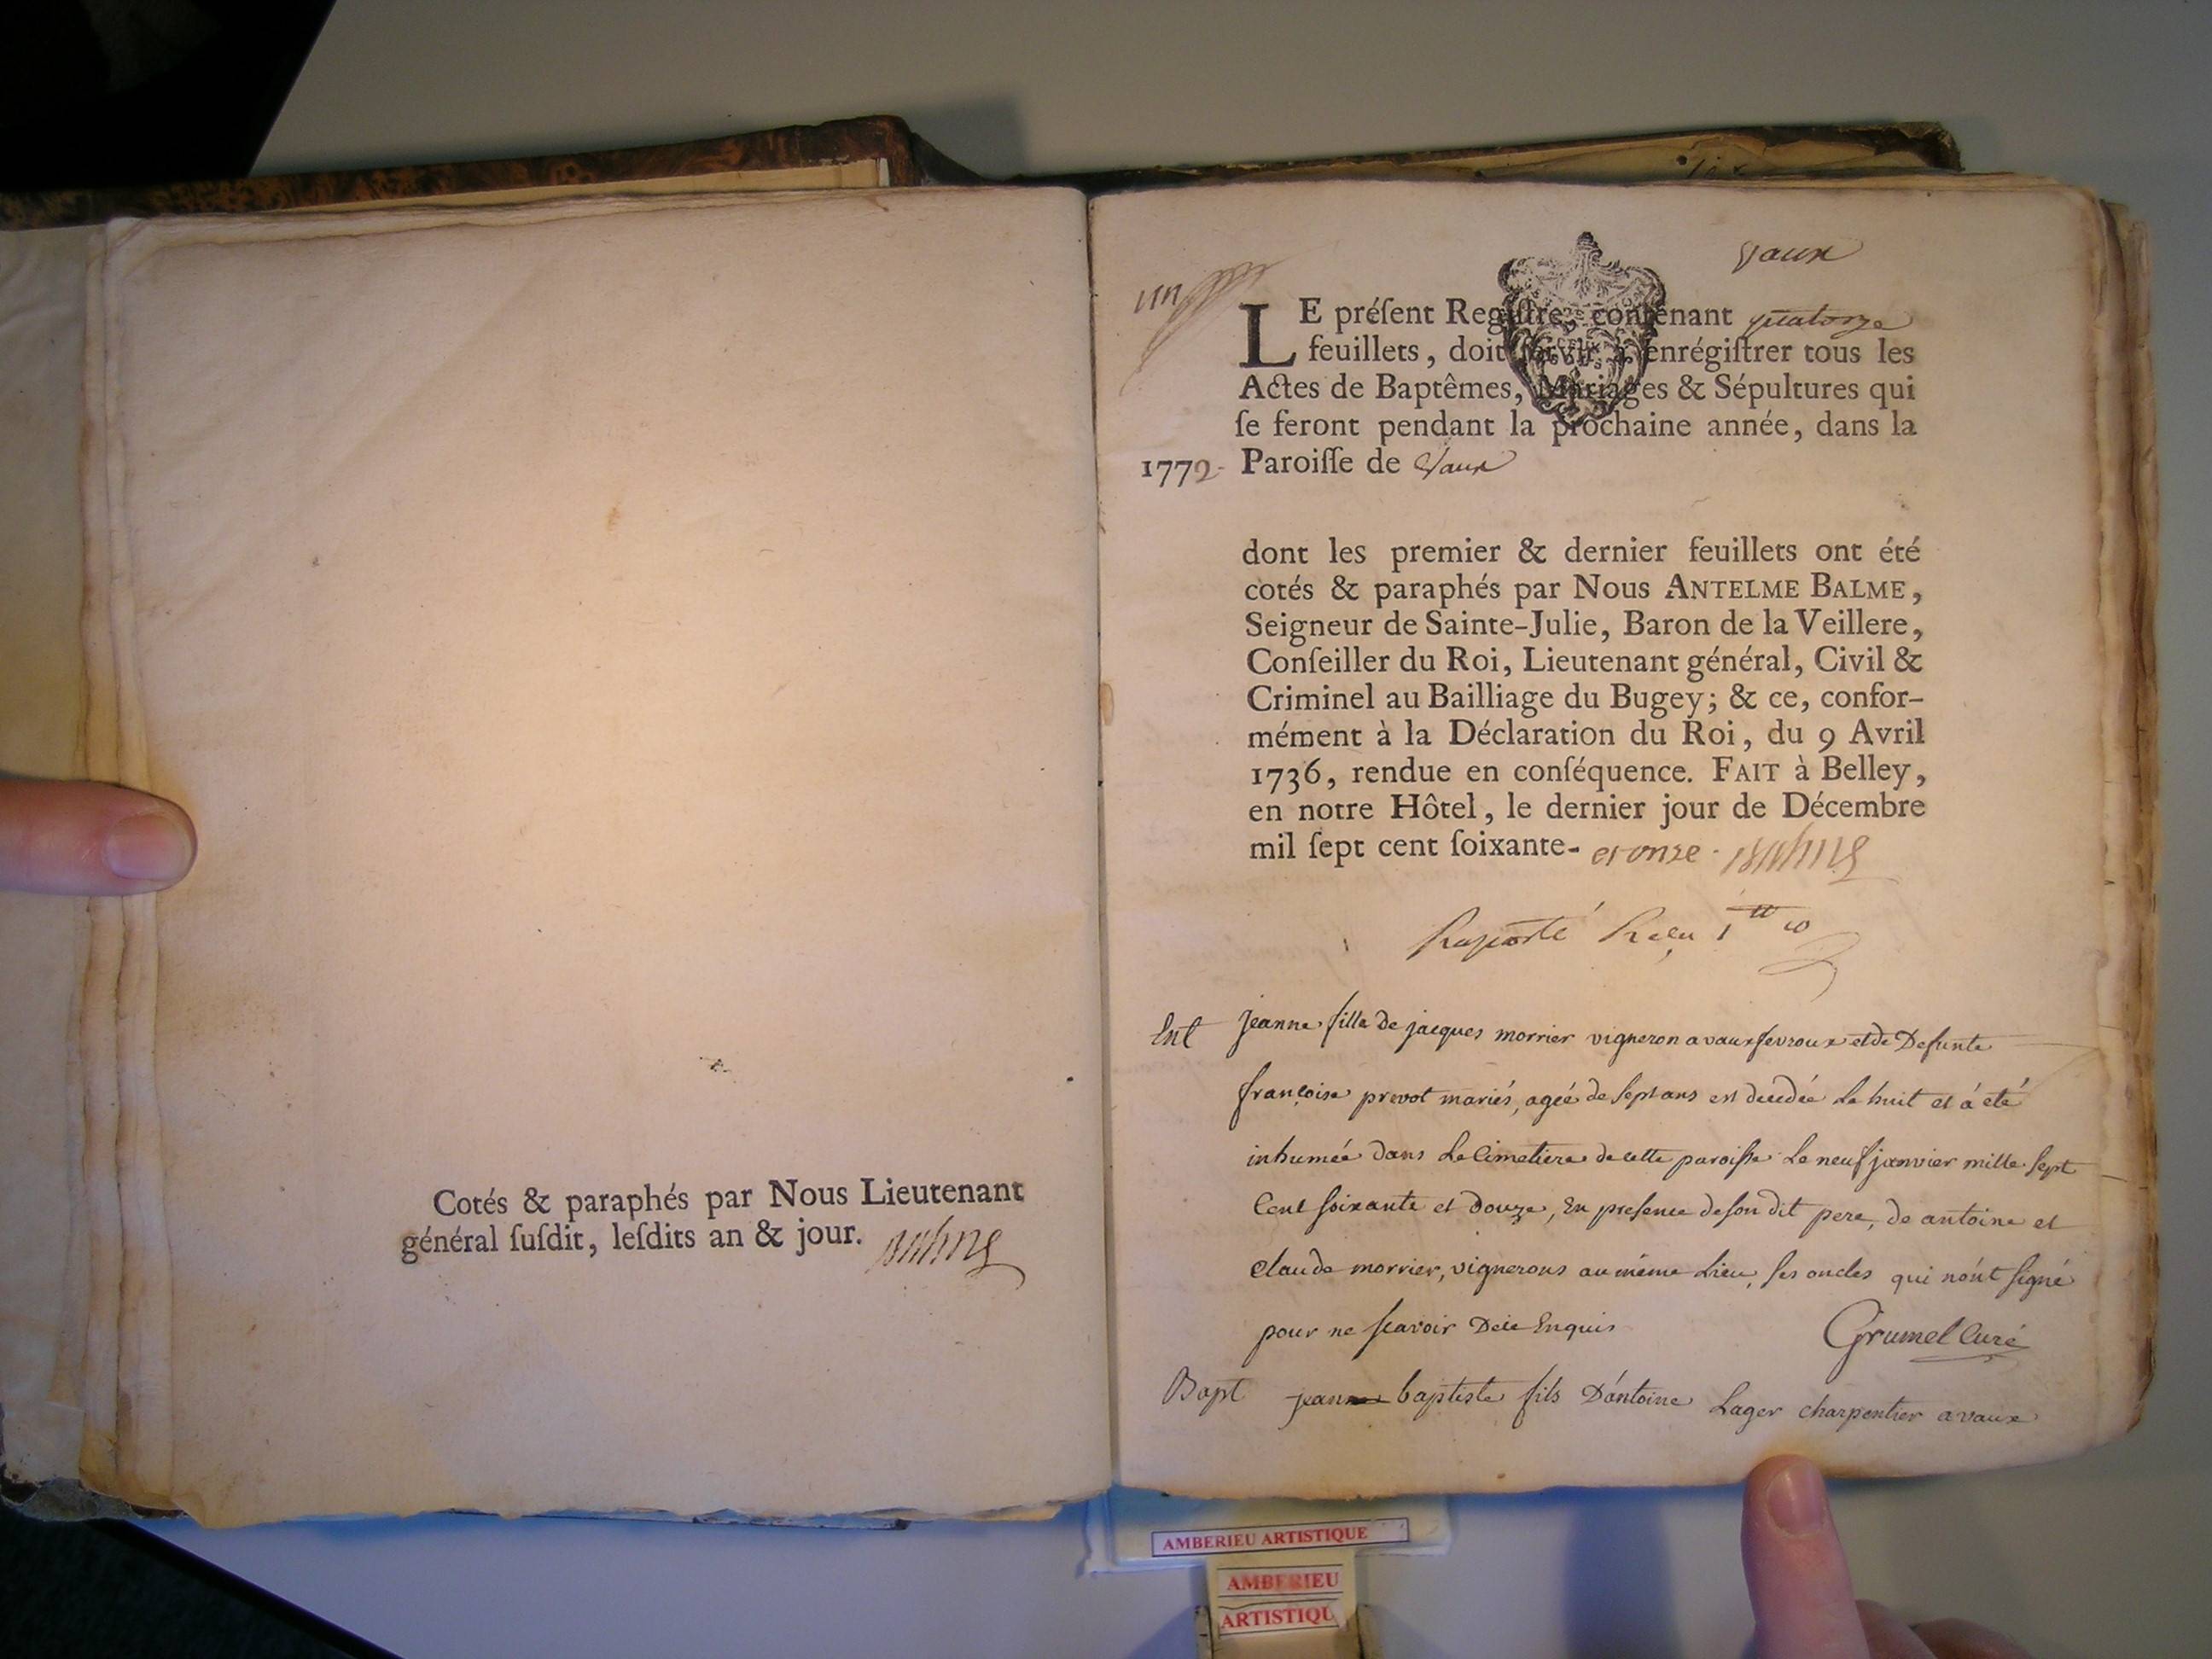 Cotés & paraphés par Nous Lieutenant
général ſuſdit, leſdits an & jour. Balme
un
Vaux
LE préſent Regiſtre, contenant quatorze
feuillets, doit ſervir à enrégiſtrer tous les
Actes de Baptêmes, Mariages & Sépultures qui
ſe feront pendant la prochaine année, dans la
1772 Paroiſſe de Vaux
dont les premier & dernier feuillets ont été
cotés & paraphés par Nous ANTELME BALME,
Seigneur de Sainte-Julie, Baron de la Veillere,
Conſeiller du Roi, Lieutenant général, Civil &
Criminel au Bailliage du Bugey; & ce, confor-
mément à la Déclaration du Roi, du 9 Avril
1736, rendue en conſéquence. FAIT à Belley,
en notre Hôtel, le dernier jour de Décembre
mil ſept cent ſoixante- et onze. Balme
Raporté Reçu
Ent jeanne fille de jacques morrier vigneron a vaux fevroux et de Defunte
françoise prevot mariés, agée de sept ans est decedée le huit et á eté
inhumée dans Le Cimetiere de cette paroisse Le neuf janvier mille sept
Cent soixante et Douze, En presence de son dit pere, de antoine et
claude morrier, vignerons au même Lieu, ses oncles qui n'ont signé
pour ne scavoir De ce Enquis Grumel Curé
Bapt jean baptiste fils D'antoine Lager charpentier a vaux
AMBERIEU ARTISTIQUE
AMBERIEU
ARTISTIQU